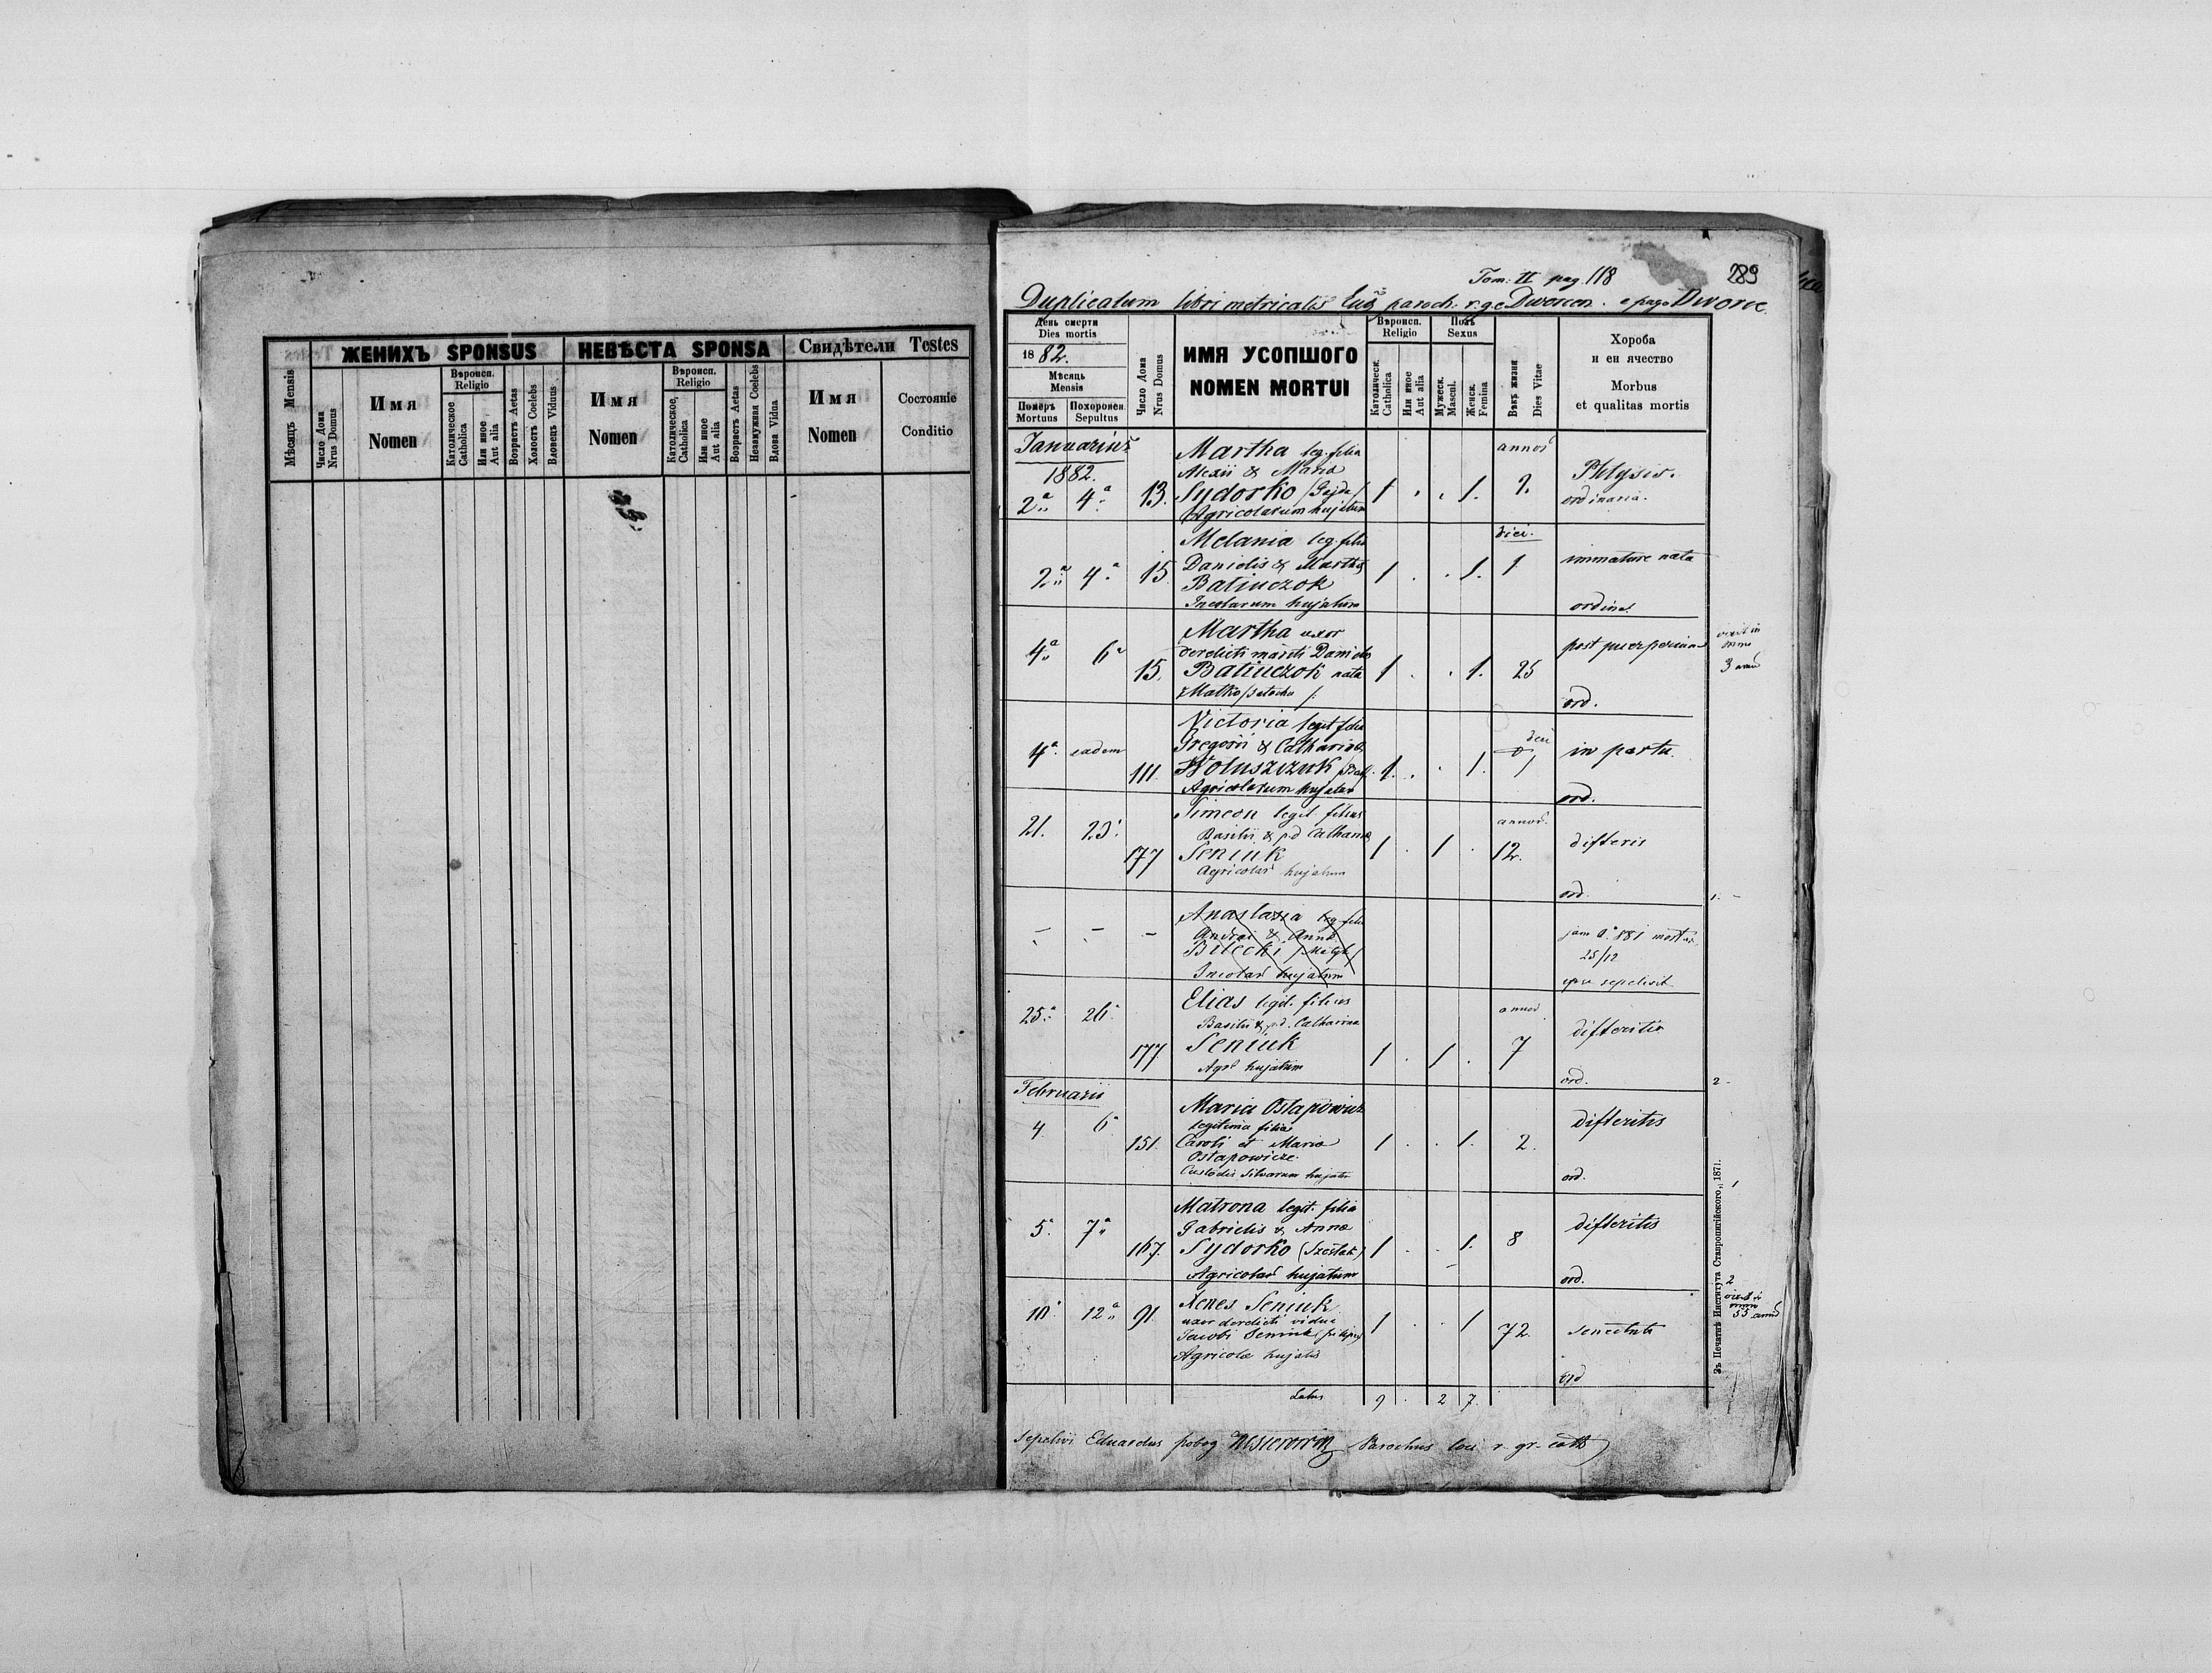 Мѣсяць Mensis
ЖЕНИХЪ SPONSUS
НЕВѢСТА SPONSA
Свидѣтели Testes
Число Дома
Nrus Domus
Имя
Nomen
Вѣроисп.
Religio
Католическое
Catholica
Или иное
Aut alia
Возрасть Aetas
Холость Coelebs
Вдовець Viduus
Имя
Nomen
Вѣроисп.
Religio
Католическое,
Catholica
Или иное
Aut alia
Возрасть Aetas
Незамужная Coelebs
Вдова Vidua
Имя
Nomen
Состояніе
Conditio
Tom: II pag. 118
289
Duplicatum libri metricalis paroch. r. g. c. Dworcen. e pago Dworce.
День смерти
Dies mortis
1882.
Мѣсяць
Mensis
Померъ
Mortuus
Похоронен
Sepultus
Число Дома
Nrus Domus
ИМЯ УСОПШОГО
NOMEN MORTUI
Вѣроисп.
Religio
Католическ.
Catholica
Или иное
Aut alia
Полъ
Sexus
Мужеск.
Mascul.
Женск.
Femina
Вѣкъ жизни
Dies Vitae
Хороба
и еи ячество
Morbus
et qualitas mortis
Januarius
1882.
Martha leg. filia
Alexii & Maria
2ª 4ª 13. Sydorko (Gejda) 1 . . 1. annos 9. Phtysis.
Agricolarum hujatum ordinaria.
Melania leg. filia
2ª 4ª 15. Danielis & Martha 1 . . 1. diei. 1 immature nata
Batiuczok
Incolarum hujatum ordina.
Martha uxor
derelicti mariti Danielis
4ª 6ª 15. Batiuczok nata 1 . . 1. 25 post puerperium
Matko ord.
vixit in
3 anno
Victoria legit filia
Gregorii & Catharina
4ª. eadem 111. Woluszczuk 1. . . 1. in partu.
Agricolarum hujatum ord.
Simeon legit filius
21. 23. Basilii & p.d Catharina
177 Seniuk 1 . 1 . annos. 12. difteris
Agricolar hujatum ord.
1. -
Anastazia leg filia
Andrei & Anna
- - - Bilecki
Incolar hujatum
jam aº 881
25/12
sepelivit
Elias legit. filius
25ª 26. Basilii & p.d. Catharina
177. Seniuk 1 . 1 . annos 7 difteritis
Agr hujatum ord.
2 -
Februarii
Maria Ostapowicz
legitima filia
4. 6 151. Caroli et Maria 1 . . 1. 2. difteritis
Ostapowicze.
Custodis silvarum hujatis ord.
1
Matrona legit. filia
5ª 7ª Gabrielis & Anna
167. Sydorko (Szostak) 1 . . 1. 8 difteritis
Agricolar hujatum ord.
2
Xenes Seniuk
10. 12ª 91. uxor derelicti vidua 1 . . 1 72. senectute
Jacobi Seniuk
Agricola hujatis ord
55 anno
Latus 9 . 2 7.
Sepelivi Eduardus Parochus loci r. gr. cath
Зъ Печатнѣ Института Ставропигійского, 1871.